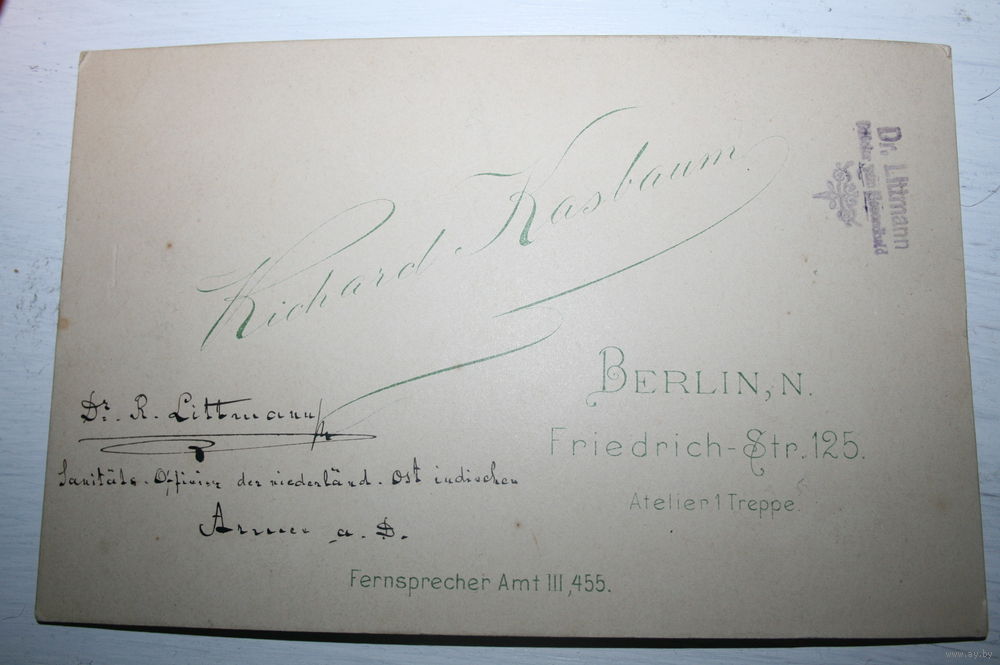 Richard Kasbaum
BERLIN, N.
Friedrich-Str. 125.
Atelier 1 Treppe.
Fernsprecher Amt III, 455.
Dr. R. Littmann
Sanitäts-Offizier der niederländ. Ost indischen
Armee a. D.
Dr. Littmann
www.ay.by